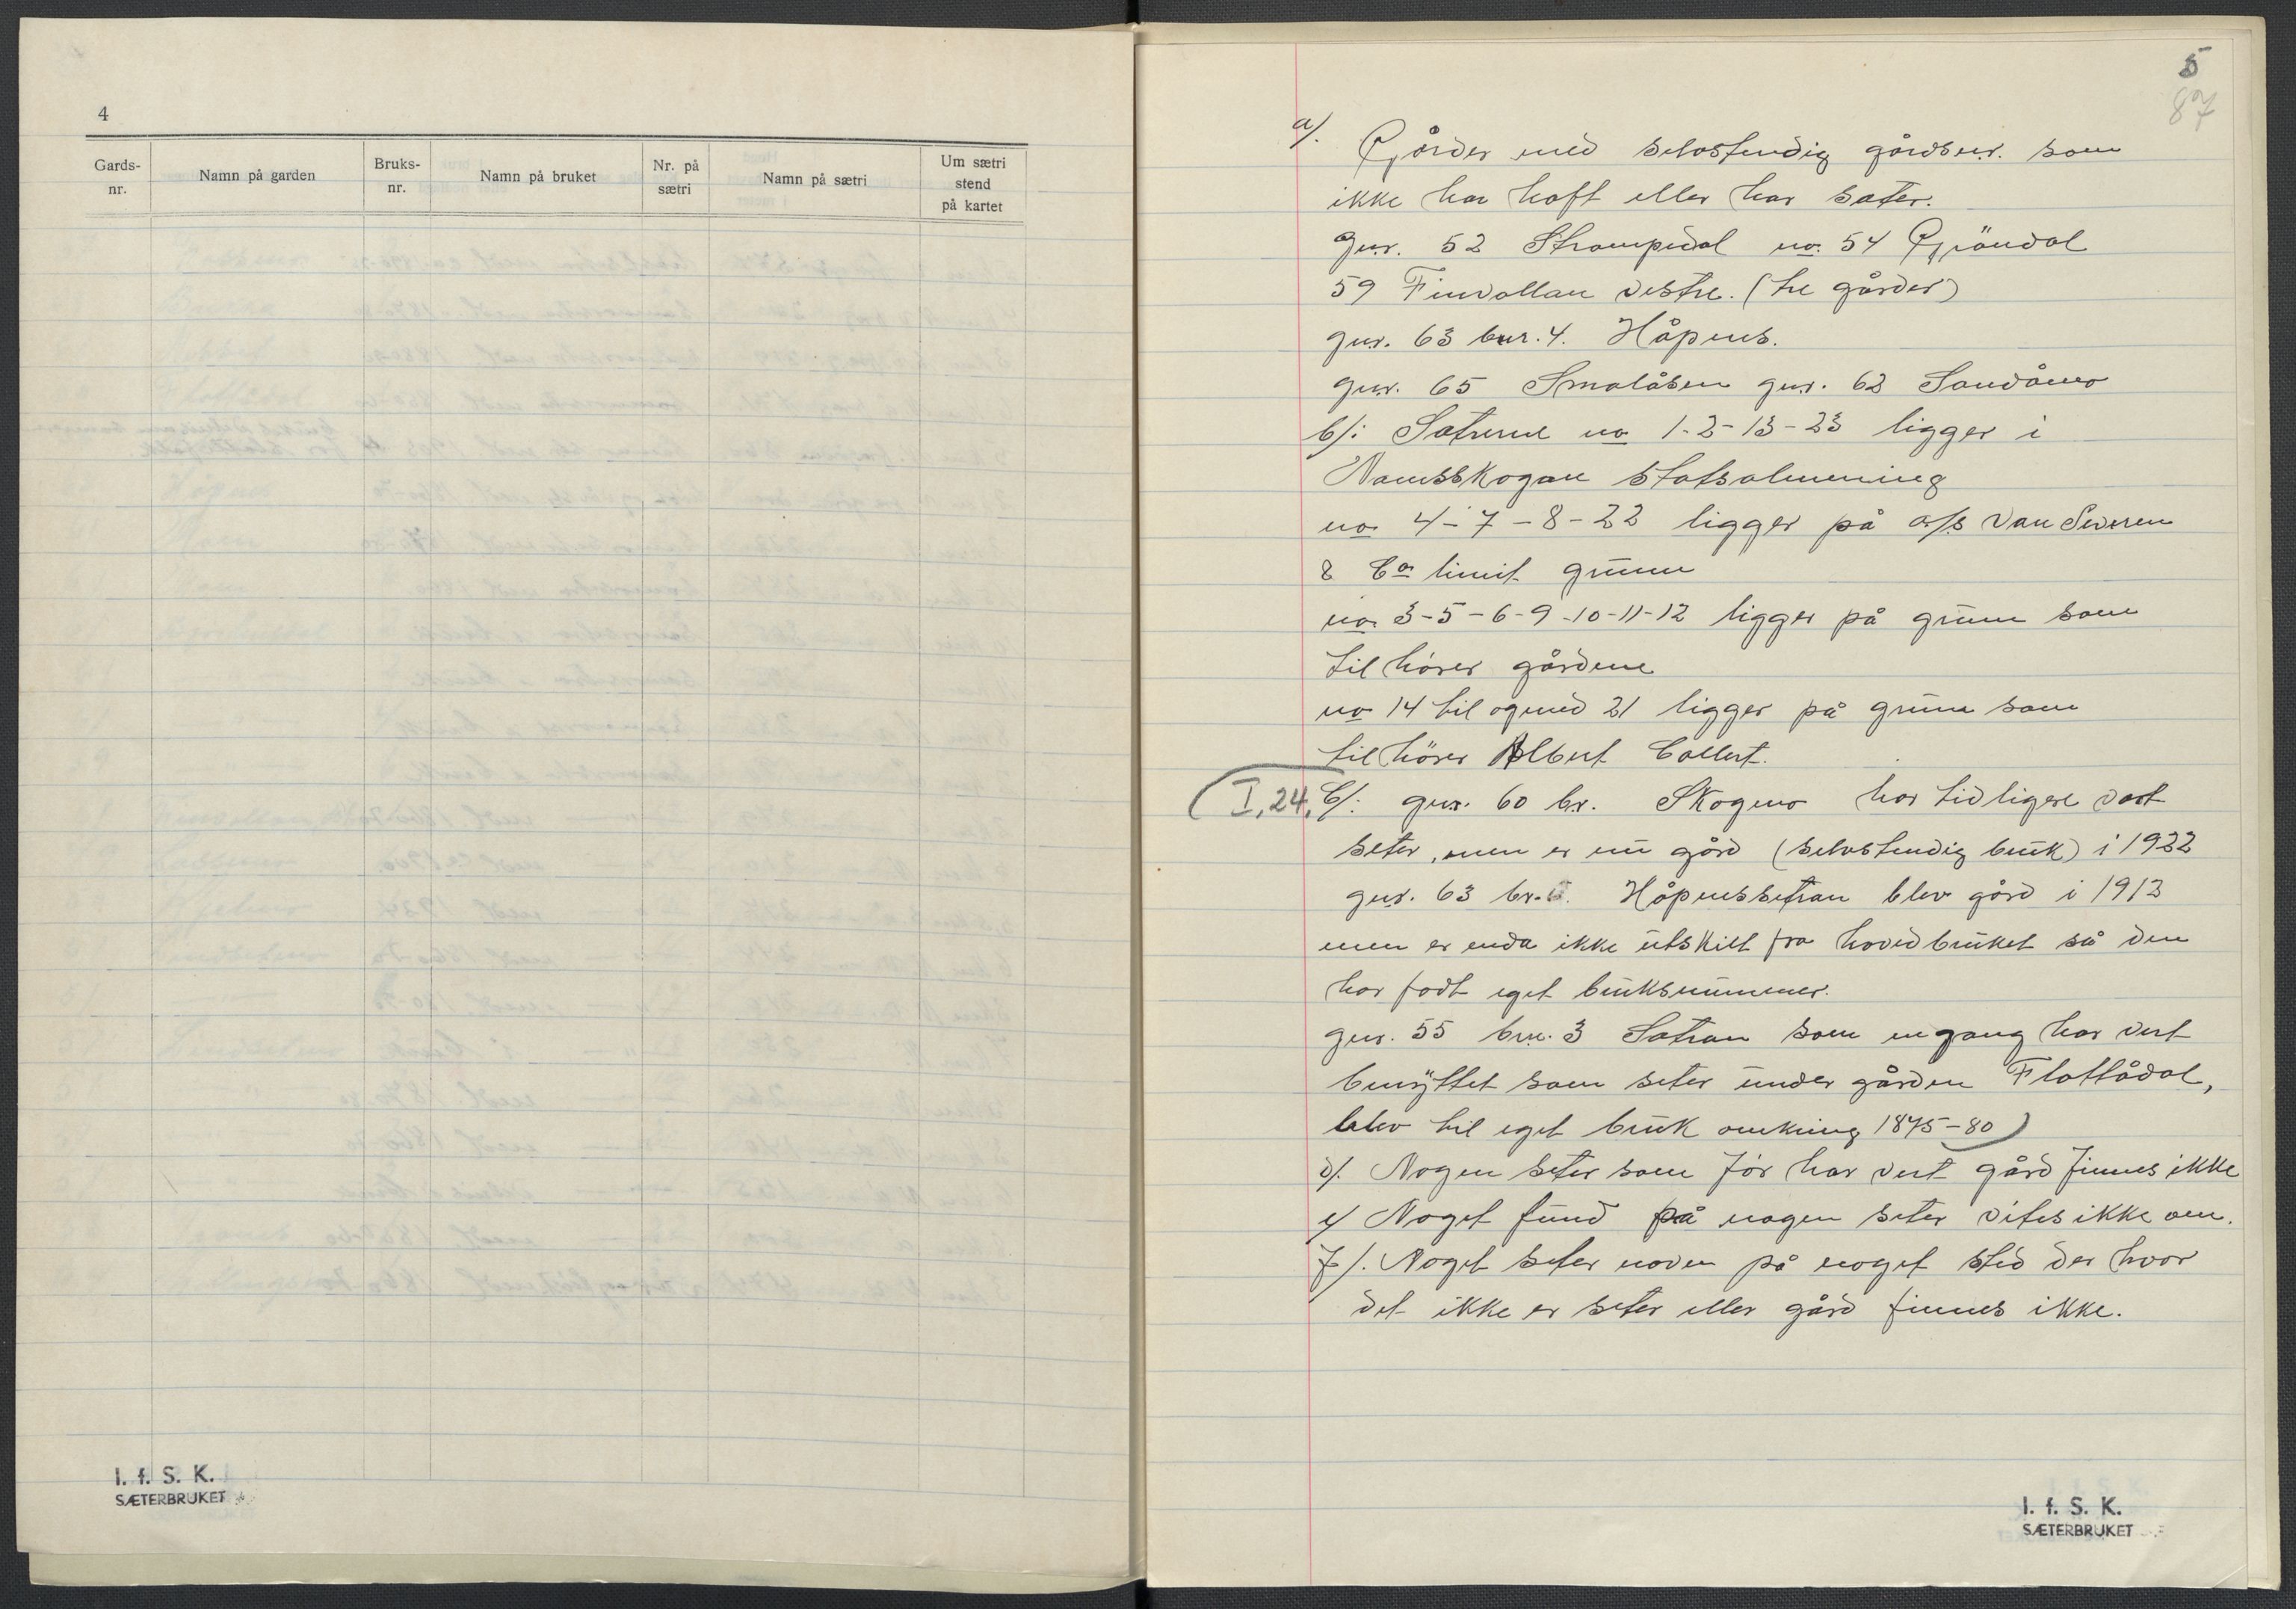 4
Gards-
nr.
Namn på garden
Bruks-
nr.
Namn på bruket
Nr. på
sætri
Namn på sætri
Um sætri
stend
på kartet
I. f. S. K.
SÆTERBRUKET
5
87
a/. Gårder med selvstendig gårdsnr. som
ikke har haft eller har sæter.
gnr. 52 Strompdal no. 54 Gröndal
59 Finvollan vestre. (tre gårder)
gnr. 63 bnr. 4. Håpnes.
gnr. 65 Smalåsen gnr. 62 Sandåmo
b/: Sætrene no 1-2-13-23 ligger i
Namsskogan statsalmenning
no 4-7-8-22 ligger på a/s Van Severen
& Co limit grunn
no 3-5-6-9-10-11-12 ligger på grunn som
tilhörer gårdene
no 14 til ogmed 21 ligger på grunn som
tilhörer Albert Collett.
(I, 24. C/: gnr. 60 br. Skogmo har tidligere vært
seter, men er nu gård (selvstendig bruk) i 1922
gnr. 63 br. Håpnessetran blev gård i 1912
men er enda ikke utskilt fra hovedbruket så den
har fått eget bruksnummer.
gnr. 55 brn. 3 Sætran som engang har vert
benyttet som seter under gården Flottådal,
blev til eget bruk omkring 1875-80)
d/. Nogen seter som för har vert gård finnes ikke
e/ Noget fund på nogen seter vites ikke om.
f/. Noget seter navn på noget sted der hvor
det ikke er seter eller gård finnes ikke.
I. f. S. K.
SÆTERBRUKET